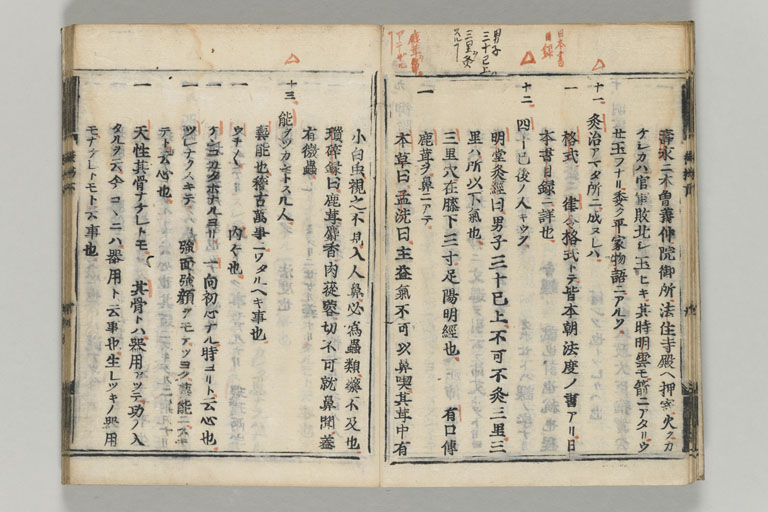 日本書
目録
男子
三十已上
三里灸
スルフ
鹿茸鼻
壽永二木曽義仲院御所法住寺殿ヘ押寄火ヲカ
ケシカハ官軍敗北シ玉ヒキ其時明雲モ箭ニアタリウ
セ玉フナリ委ク平家物語ニアルソ
十一 灸治アマタ所ニ成ヌレハ
一 格式 律令格式トテ皆本朝法度ノ書アリ日
本書目録ニ詳也
十二 四十已後ノ人
明堂灸經曰男子三十已上不可不灸三里三
里ハ所以下氣也
三里穴在膝下三寸足陽明經也 有口傳
一 鹿茸ヲ鼻ニアテ
本草曰孟詵曰主益氣不可以鼻嗅其茸中有
小白虫視之不見入人鼻必為蟲類藥不及也
瑣碎録曰鹿茸麝香肉蓯蓉切不可就鼻聞蓋
有微蟲
十三 能ヲツカントスル人
藝能也稽古萬事ニワタルヘキ事也
一 ウチ〱 内々也
一 カタホナルヨリ 一向初心ナル時ヨリト云心也
一 ツレナクスキテ 強面強顔
テト云心也
一 天性其骨ナケレトモ 其骨トハ器用アツテ功ノ入
タルヲ云今コヽニハ器用ト云事也生レツキノ器用
モナケレトモト云事也